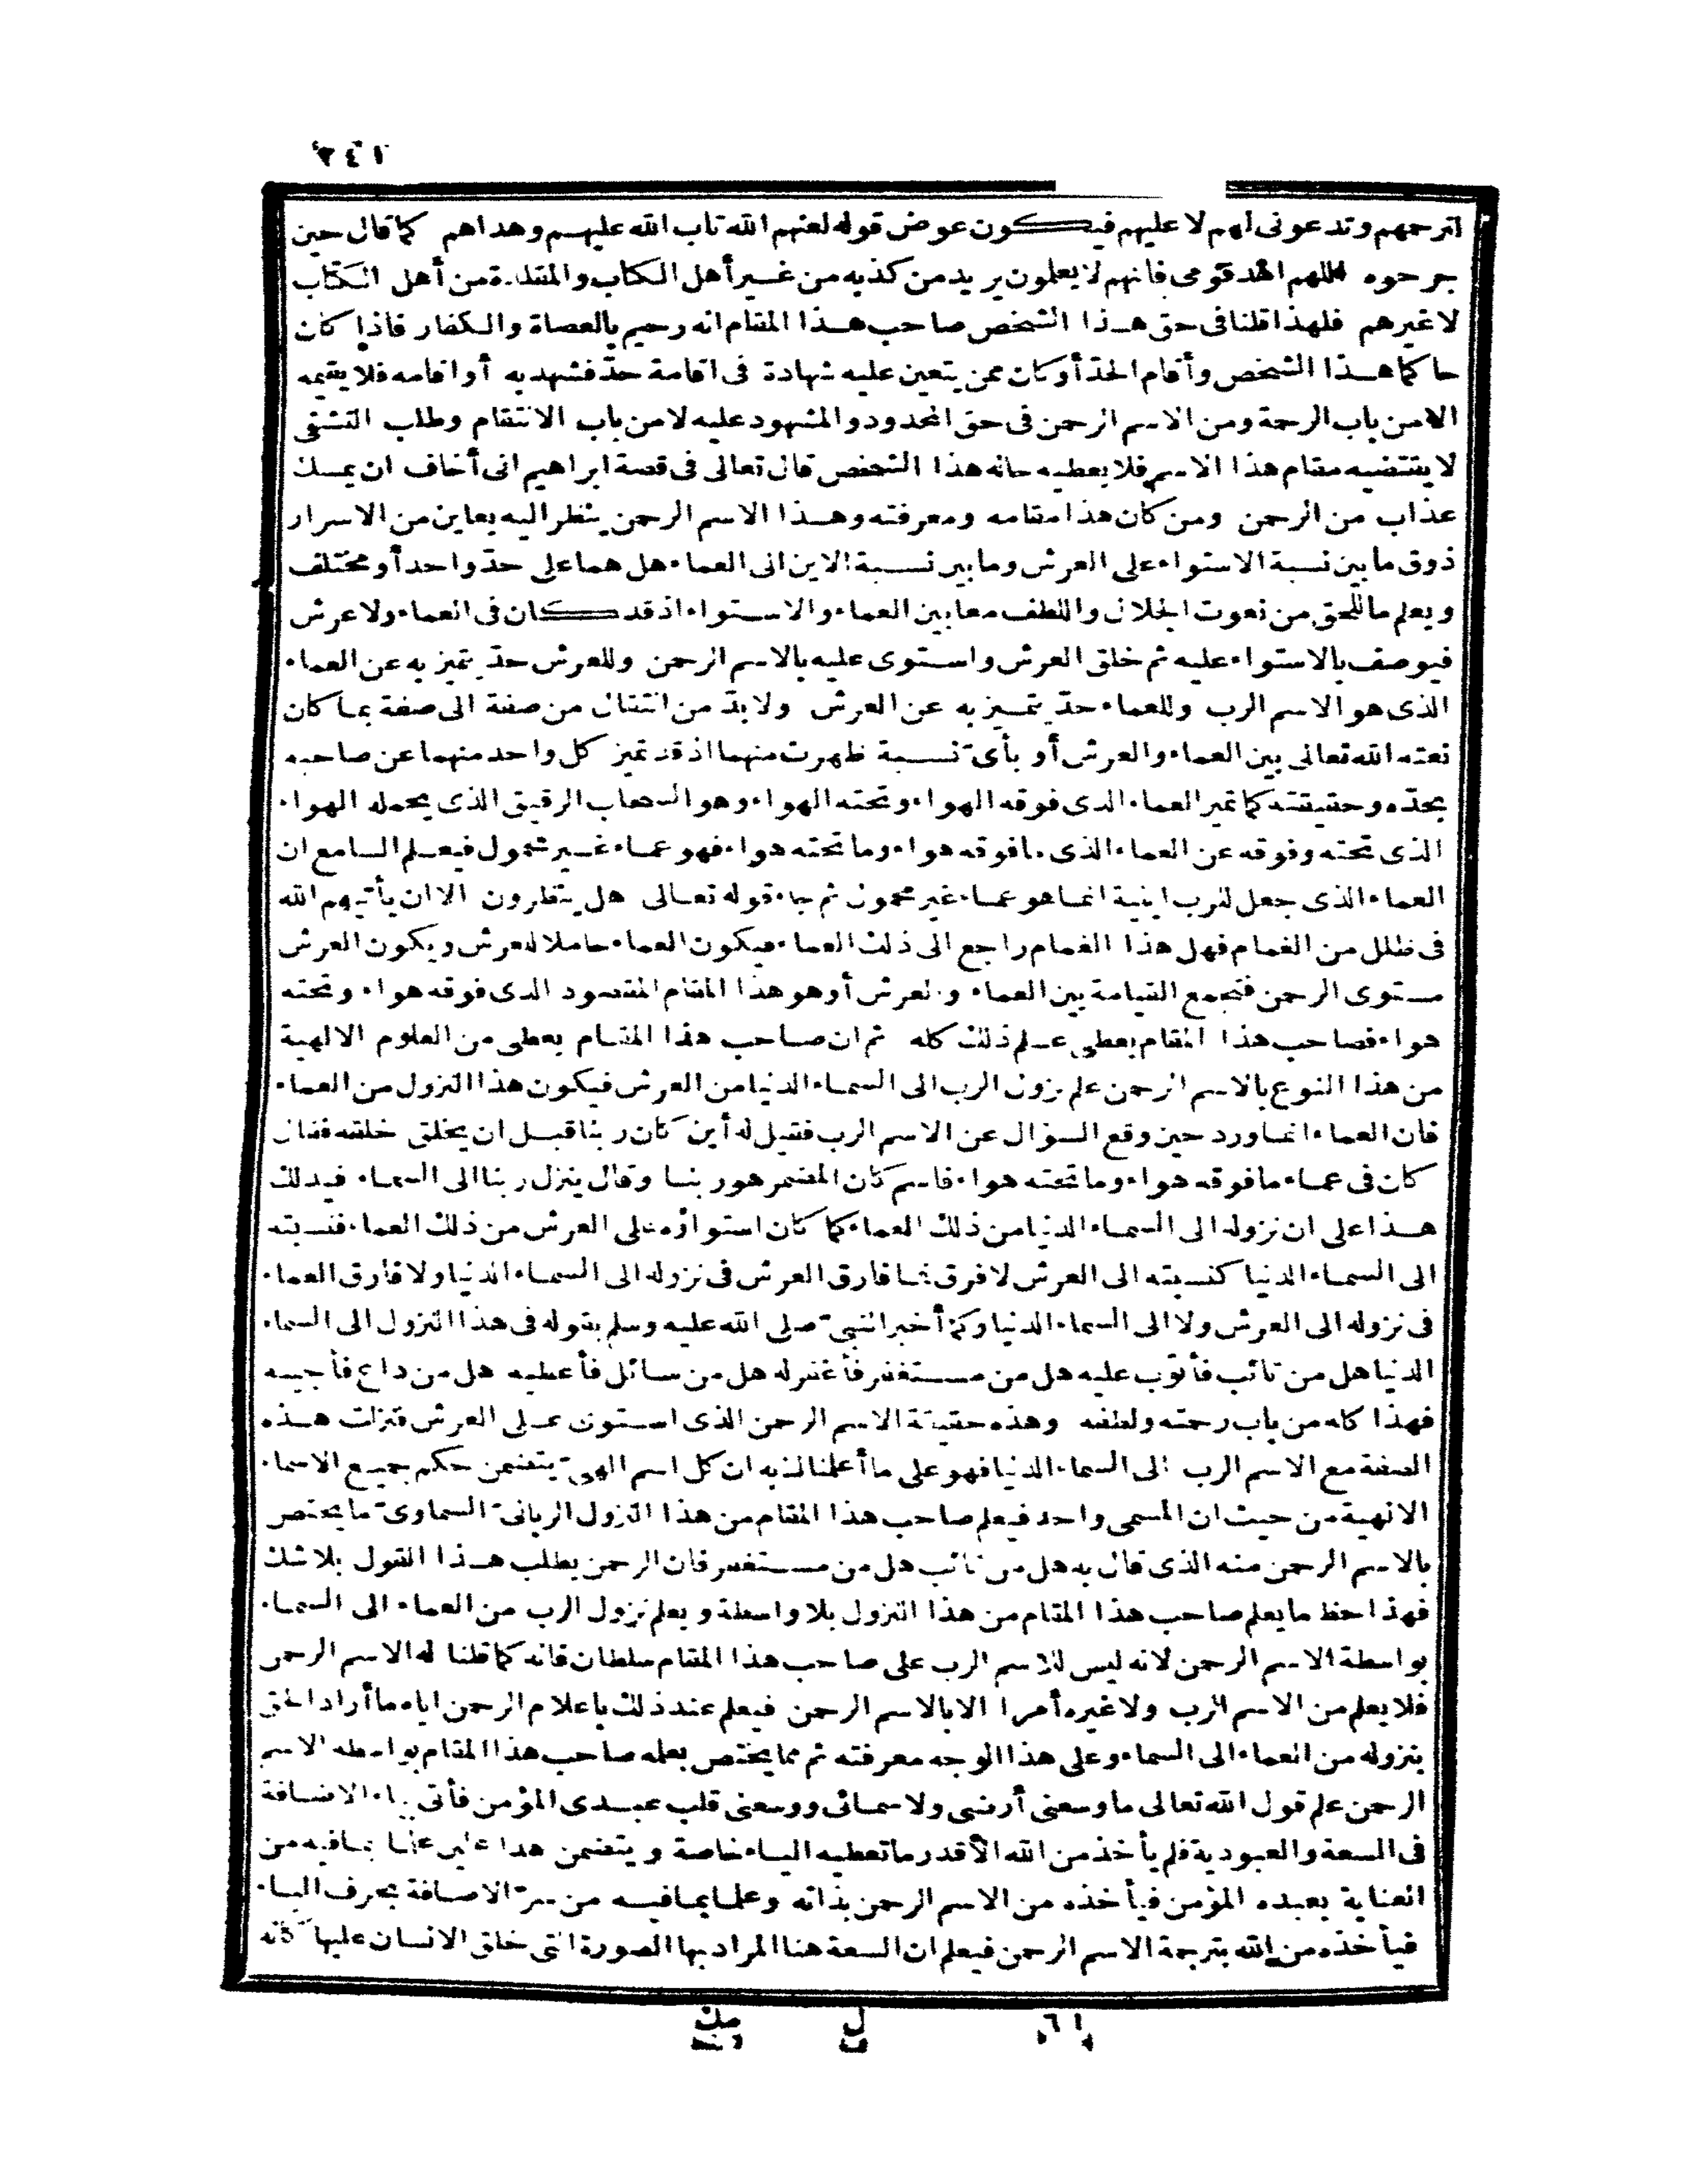 ٢٤١
لترحمهم وتدعونى لهم لا عليهم فيكون عوض قوله لعنهم الله تاب الله عليهم وهداهم كما قال حين
جرحوه اللهم اهد قومى فانهم لا يعلمون يريد من كذبه من غير أهل الكتاب والمقلدة من أهل الكتاب
لا غيرهم فلهذا قلنا فى حق هذا الشخص صاحب هذا المقام انه رحيم بالعصاة والكفار فاذا كان
حاكما هذا الشخص وأقام الحد أو كان ممن يتعين عليه شهادة فى اقامة حدّ فشهد به أو اقامه فلا يقيمه
الا من باب الرحمة ومن الاسم الرحمن فى حق المحدود والمشهود عليه لا من باب الانتقام وطلب التشفى
لا يقتضيه مقام هذا الاسم فلا يعطيه حاله هذا الشخص قال تعالى فى قصة ابراهيم انى أخاف ان يمسك
عذاب من الرحمن ومن كان هذا مقامه ومعرفته وهذا الاسم الرحمن ينظر اليه يعاين من الاسرار
ذوق ما بين نسبة الاستواء على العرش وما بين نسبة الاين الى العماء هل هما على حدّ واحد أو مختلف
ويعلم ما للحق من نعوت الجلال واللطف معا بين العماء والاستواء اذ قد كان فى العماء ولا عرش
فيوصف بالاستواء عليه ثم خلق العرش واستوى عليه بالاسم الرحمن وللعرش حدّ يتميز به عن العماء
الذى هو الاسم الرب وللعماء حدّ يتميز به عن العرش ولا بدّ من انتقال من صفة الى صفة بما كان
نعته الله تعالى بين العماء والعرش أو بأىّ نسبة ظهرت منهما اذ قد تميز كل واحد منهما عن صاحبه
بحدّه وحقيقته كما تميز العماء الذى فوقه الهواء وتحته الهواء وهو السحاب الرقيق الذى يحمله الهواء
الذى تحته وفوقه عن العماء الذى ما فوقه هواء وما تحته هواء فهو عماء غير محمول فيعلم السامع ان
العماء الذى جعل للرب اينية انما هو عماء غير محمول ثم جاء قوله تعالى هل ينظرون الا ان يأتيهم الله
فى ظلل من الغمام فهل هذا الغمام راجع الى ذلك العماء فيكون العماء حاملا للعرش ويكون العرش
مستوى الرحمن فتجمع القيامة بين العماء والعرش أو هو هذا المقام المقصود الذى فوقه هواء وتحته
هواء فصاحب هذا المقام يعطى علم ذلك كله ثم ان صاحب هذا المقام يعطى من العلوم الالهية
من هذا النوع بالاسم الرحمن علم نزول الرب الى السماء الدنيا من العرش فيكون هذا النزول من العماء
فان العماء انما ورد حين وقع السؤال عن الاسم الرب فقيل له أين كان ربنا قبل ان يخلق خلقه فقال
كان فى عماء ما فوقه هواء وما تحته هواء فاسم كان المضمر هو ربنا وقال ينزل ربنا الى السماء فيدلك
هذا على ان نزوله الى السماء الدنيا من ذلك العماء كما كان استواؤه على العرش من ذلك العماء فنسبته
الى السماء الدنيا كنسبته الى العرش لا فرق فما فارق العرش فى نزوله الى السماء الدنيا ولا فارق العماء
فى نزوله الى العرش ولا الى السماء الدنيا وكما أخبر النبىّ صلى الله عليه وسلم بقوله فى هذا النزول الى السماء
الدنيا هل من تائب فأتوب عليه هل من مستغفر فأغفر له هل من سائل فأعطيه هل من داع فأجيبه
فهذا كله من باب رحمته ولطفه وهذه حقيقة الاسم الرحمن الذى استوى على العرش فنزلت هذه
الصفة مع الاسم الرب الى السماء الدنيا فهو على ما أعلمناك به ان كل اسم الهىّ يتضمن حكم جميع الاسماء
الالهية من حيث ان المسمى واحد فيعلم صاحب هذا المقام من هذا النزول الربانىّ السماوىّ ما يختص
بالاسم الرحمن منه الذى قال به هل من تائب هل من مستغفر فان الرحمن يطلب هذا القول بلا شك
فهذا حظ ما يعلم صاحب هذا المقام من هذا النزول بلا واسطة ويعلم نزول الرب من العماء الى السماء
بواسطة الاسم الرحمن لانه ليس للاسم الرب على صاحب هذا المقام سلطان فانه كما قلنا له الاسم الرحمن
فلا يعلم من الاسم الرب ولا غيره أمرا الا بالاسم الرحمن فيعلم عند ذلك باعلام الرحمن اياه ما أراد الحق
بنزوله من العماء الى السماء وعلى هذا الوجه معرفته ثم مما يختص بعلمه صاحب هذا المقام بواسطة الاسم
الرحمن علم قول الله تعالى ما وسعنى أرضى ولا سمائى ووسعنى قلب عبدى المؤمن فأتى بياء الاضافة
فى السعة والعبودية فلم يأخذ من الله الا قدر ما تعطيه الياء خاصة ويتضمن هذا علمين علما بما فيه من
العناية بعبده المؤمن فيأخذه من الاسم الرحمن بذاته وعلما بما فيه من سرّ الاضافة بحرف الياء
فيأخذه من الله بترجمة الاسم الرحمن فيعلم ان السعة هنا المراد بها الصورة التى خلق الانسان عليها كأنه
٦١ ل مك